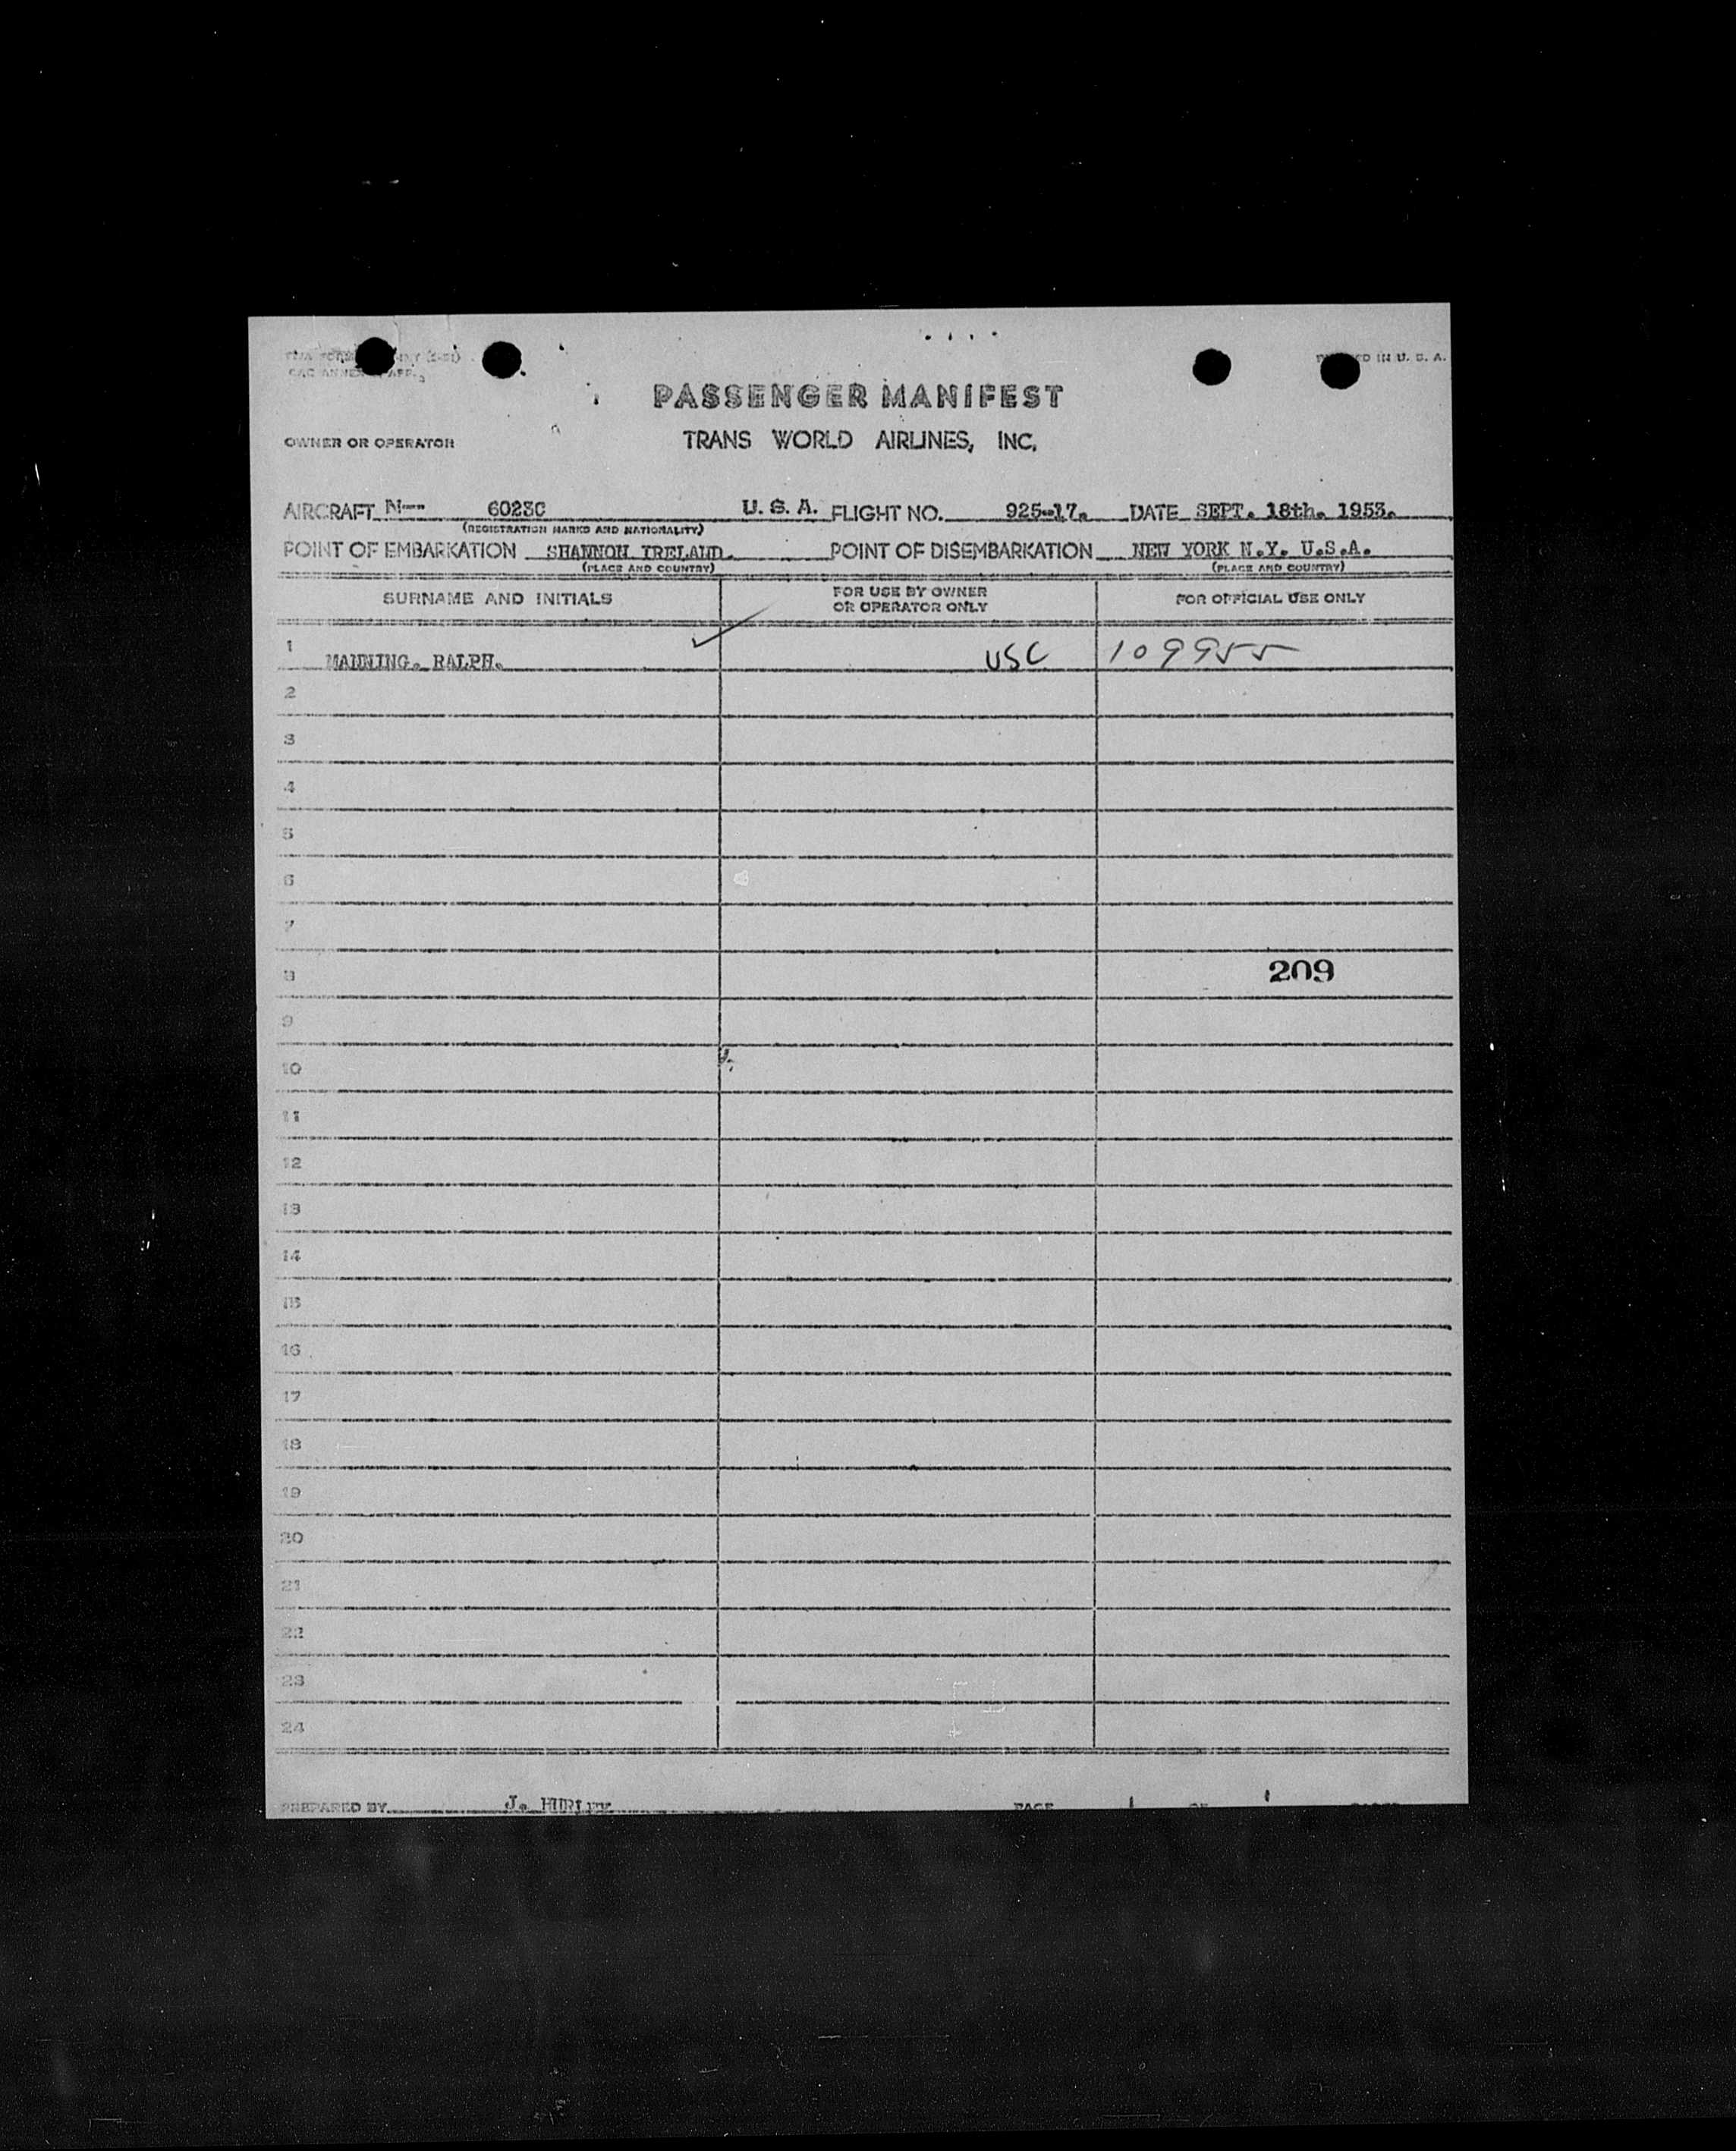 PRINTED IN U. S. A.
PASSENGER MANIFEST
OWNER OR OPERATOR TRANS WORLD AIRLINES, INC.
AIRCRAFT N-- 6023C U. S. A. FLIGHT NO. 925-17. DATE SEPT. 18th. 1953.
(REGISTRATION MARKS AND NATIONALITY)
POINT OF EMBARKATION SHANNON IRELAND. POINT OF DISEMBARKATION NEW YORK N.Y. U.S.A.
(PLACE AND COUNTRY) (PLACE AND COUNTRY)
SURNAME AND INITIALS FOR USE BY OWNER OR OPERATOR ONLY FOR OFFICIAL USE ONLY
1 MANNING. RALPH. USC 109955
2
3
4
5
6
7
8 209
9
10
11
12
13
14
15
16
17
18
19
20
21
22
23
24
PREPARED BY J. HURLEY PAGE 1 OF 1